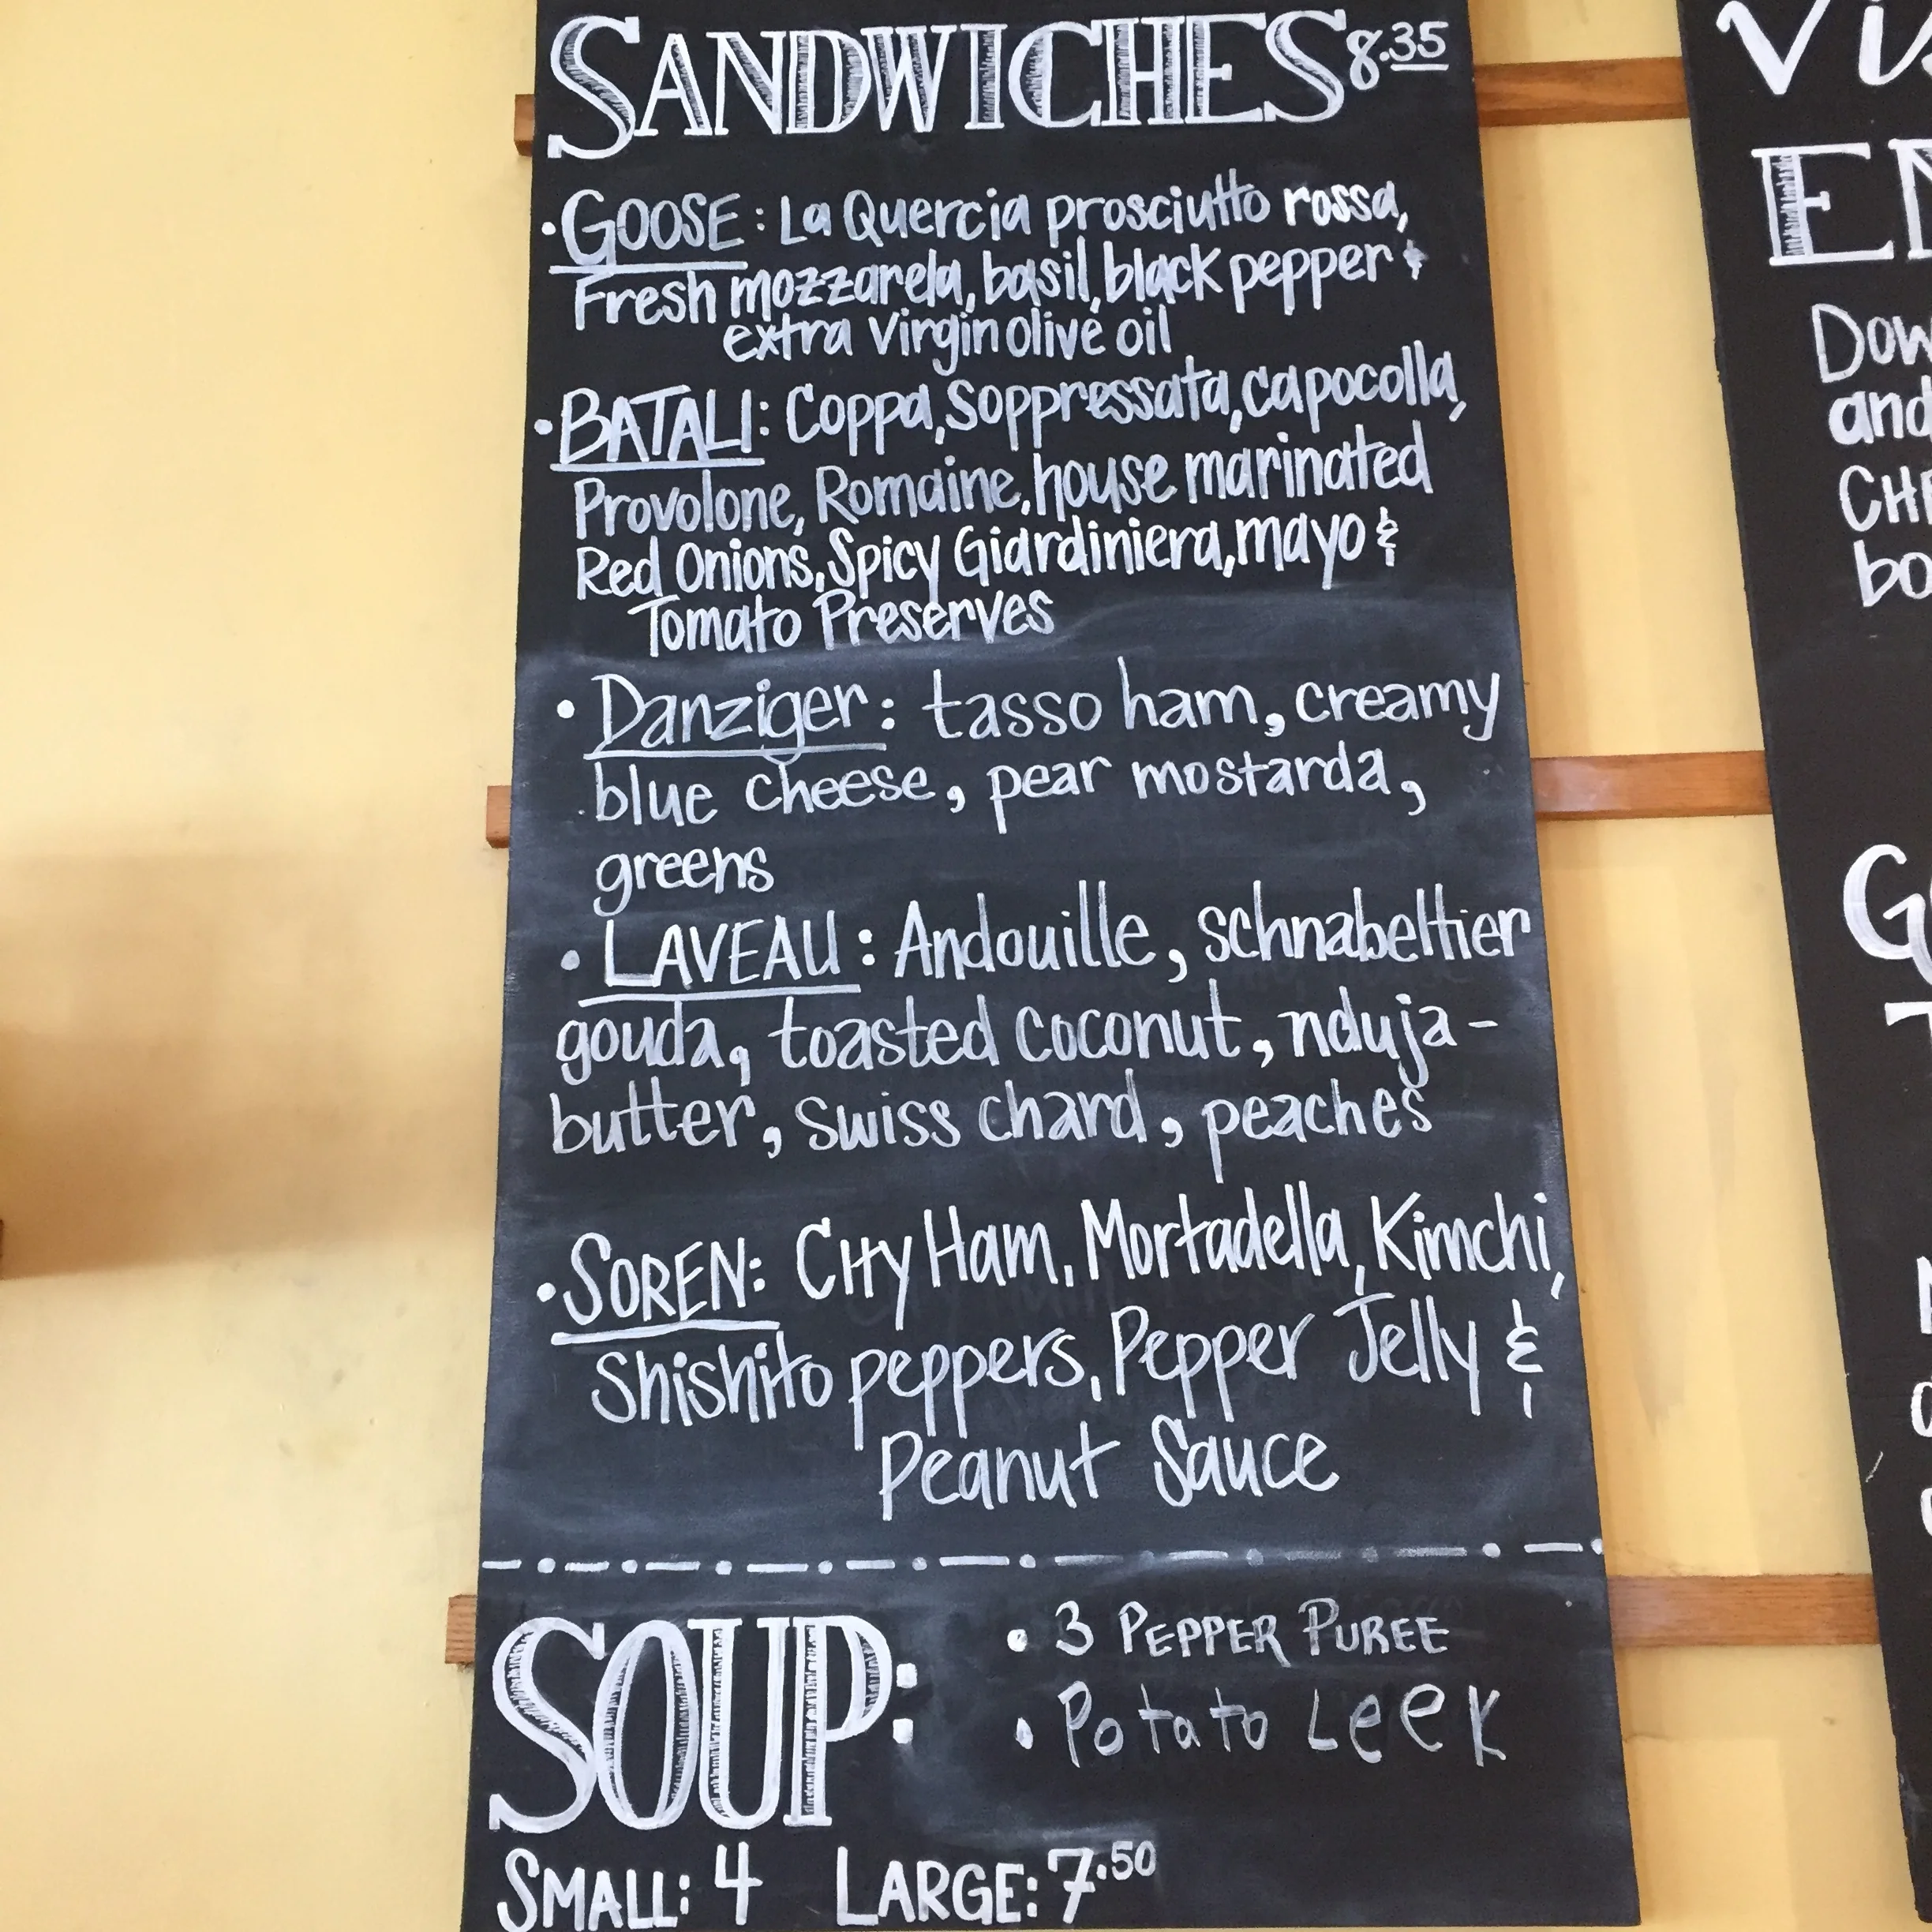 SANDWICHES 8.35
• GOOSE: La Quercia prosciutto rossa,
Fresh mozzarela, basil, black pepper &
extra virgin olive oil
• BATALI: Coppa, Soppressata, capocolla,
Provolone, Romaine, house marinated
Red Onions, Spicy Giardiniera, mayo &
Tomato Preserves
• Danziger: tasso ham, creamy
blue cheese, pear mostarda,
greens
• LAVEAU: Andouille, schnabeltier
gouda, toasted coconut, nduja-
butter, swiss chard, peaches
• SOREN: City Ham, Mortadella, Kimchi,
Shishito peppers, Pepper Jelly &
Peanut Sauce
SOUP:
• 3 PEPPER PUREE
• Potato Leek
SMALL: 4 LARGE: 7.50
and